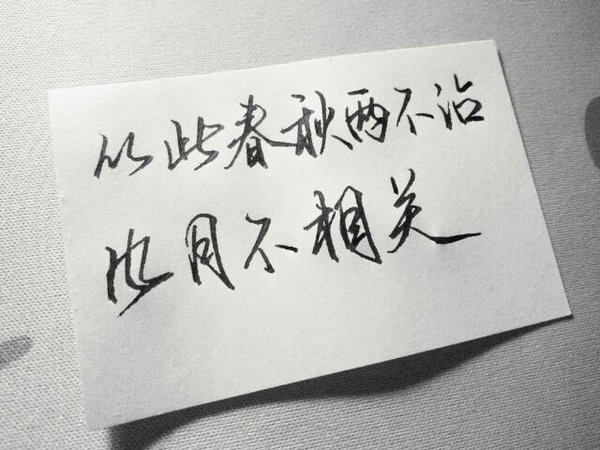 从此春秋两不沾
月不相关